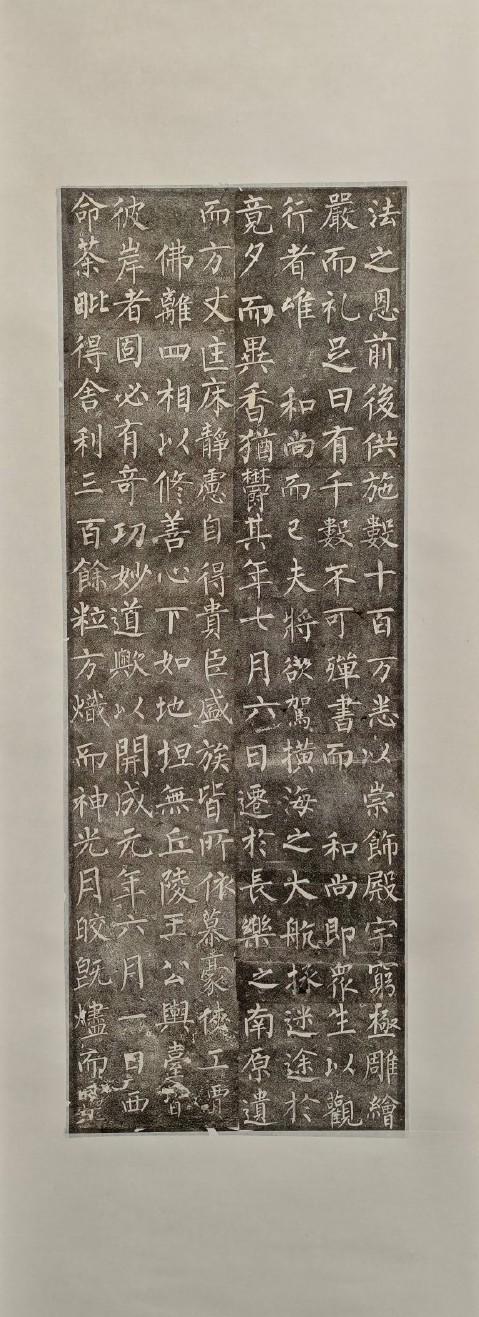 法之恩前後供施數十百万悉以崇飾殿宇窮極雕繪
嚴而礼足日有千數不可殫書而 和尚即眾生以觀
行者唯 和尚而已夫將欲駕橫海之大航拯迷途於
竟夕而異香猶鬱其年七月六日遷於長樂之南原遺
而方丈匡床靜慮自得貴臣盛族皆所依慕豪俠工賈
佛離四相以修善心下如地坦無丘陵王公輿臺皆
彼岸者固必有奇功妙道歟以開成元年六月一日西
命荼毗得舍利三百餘粒方熾而神光月皎既燼而